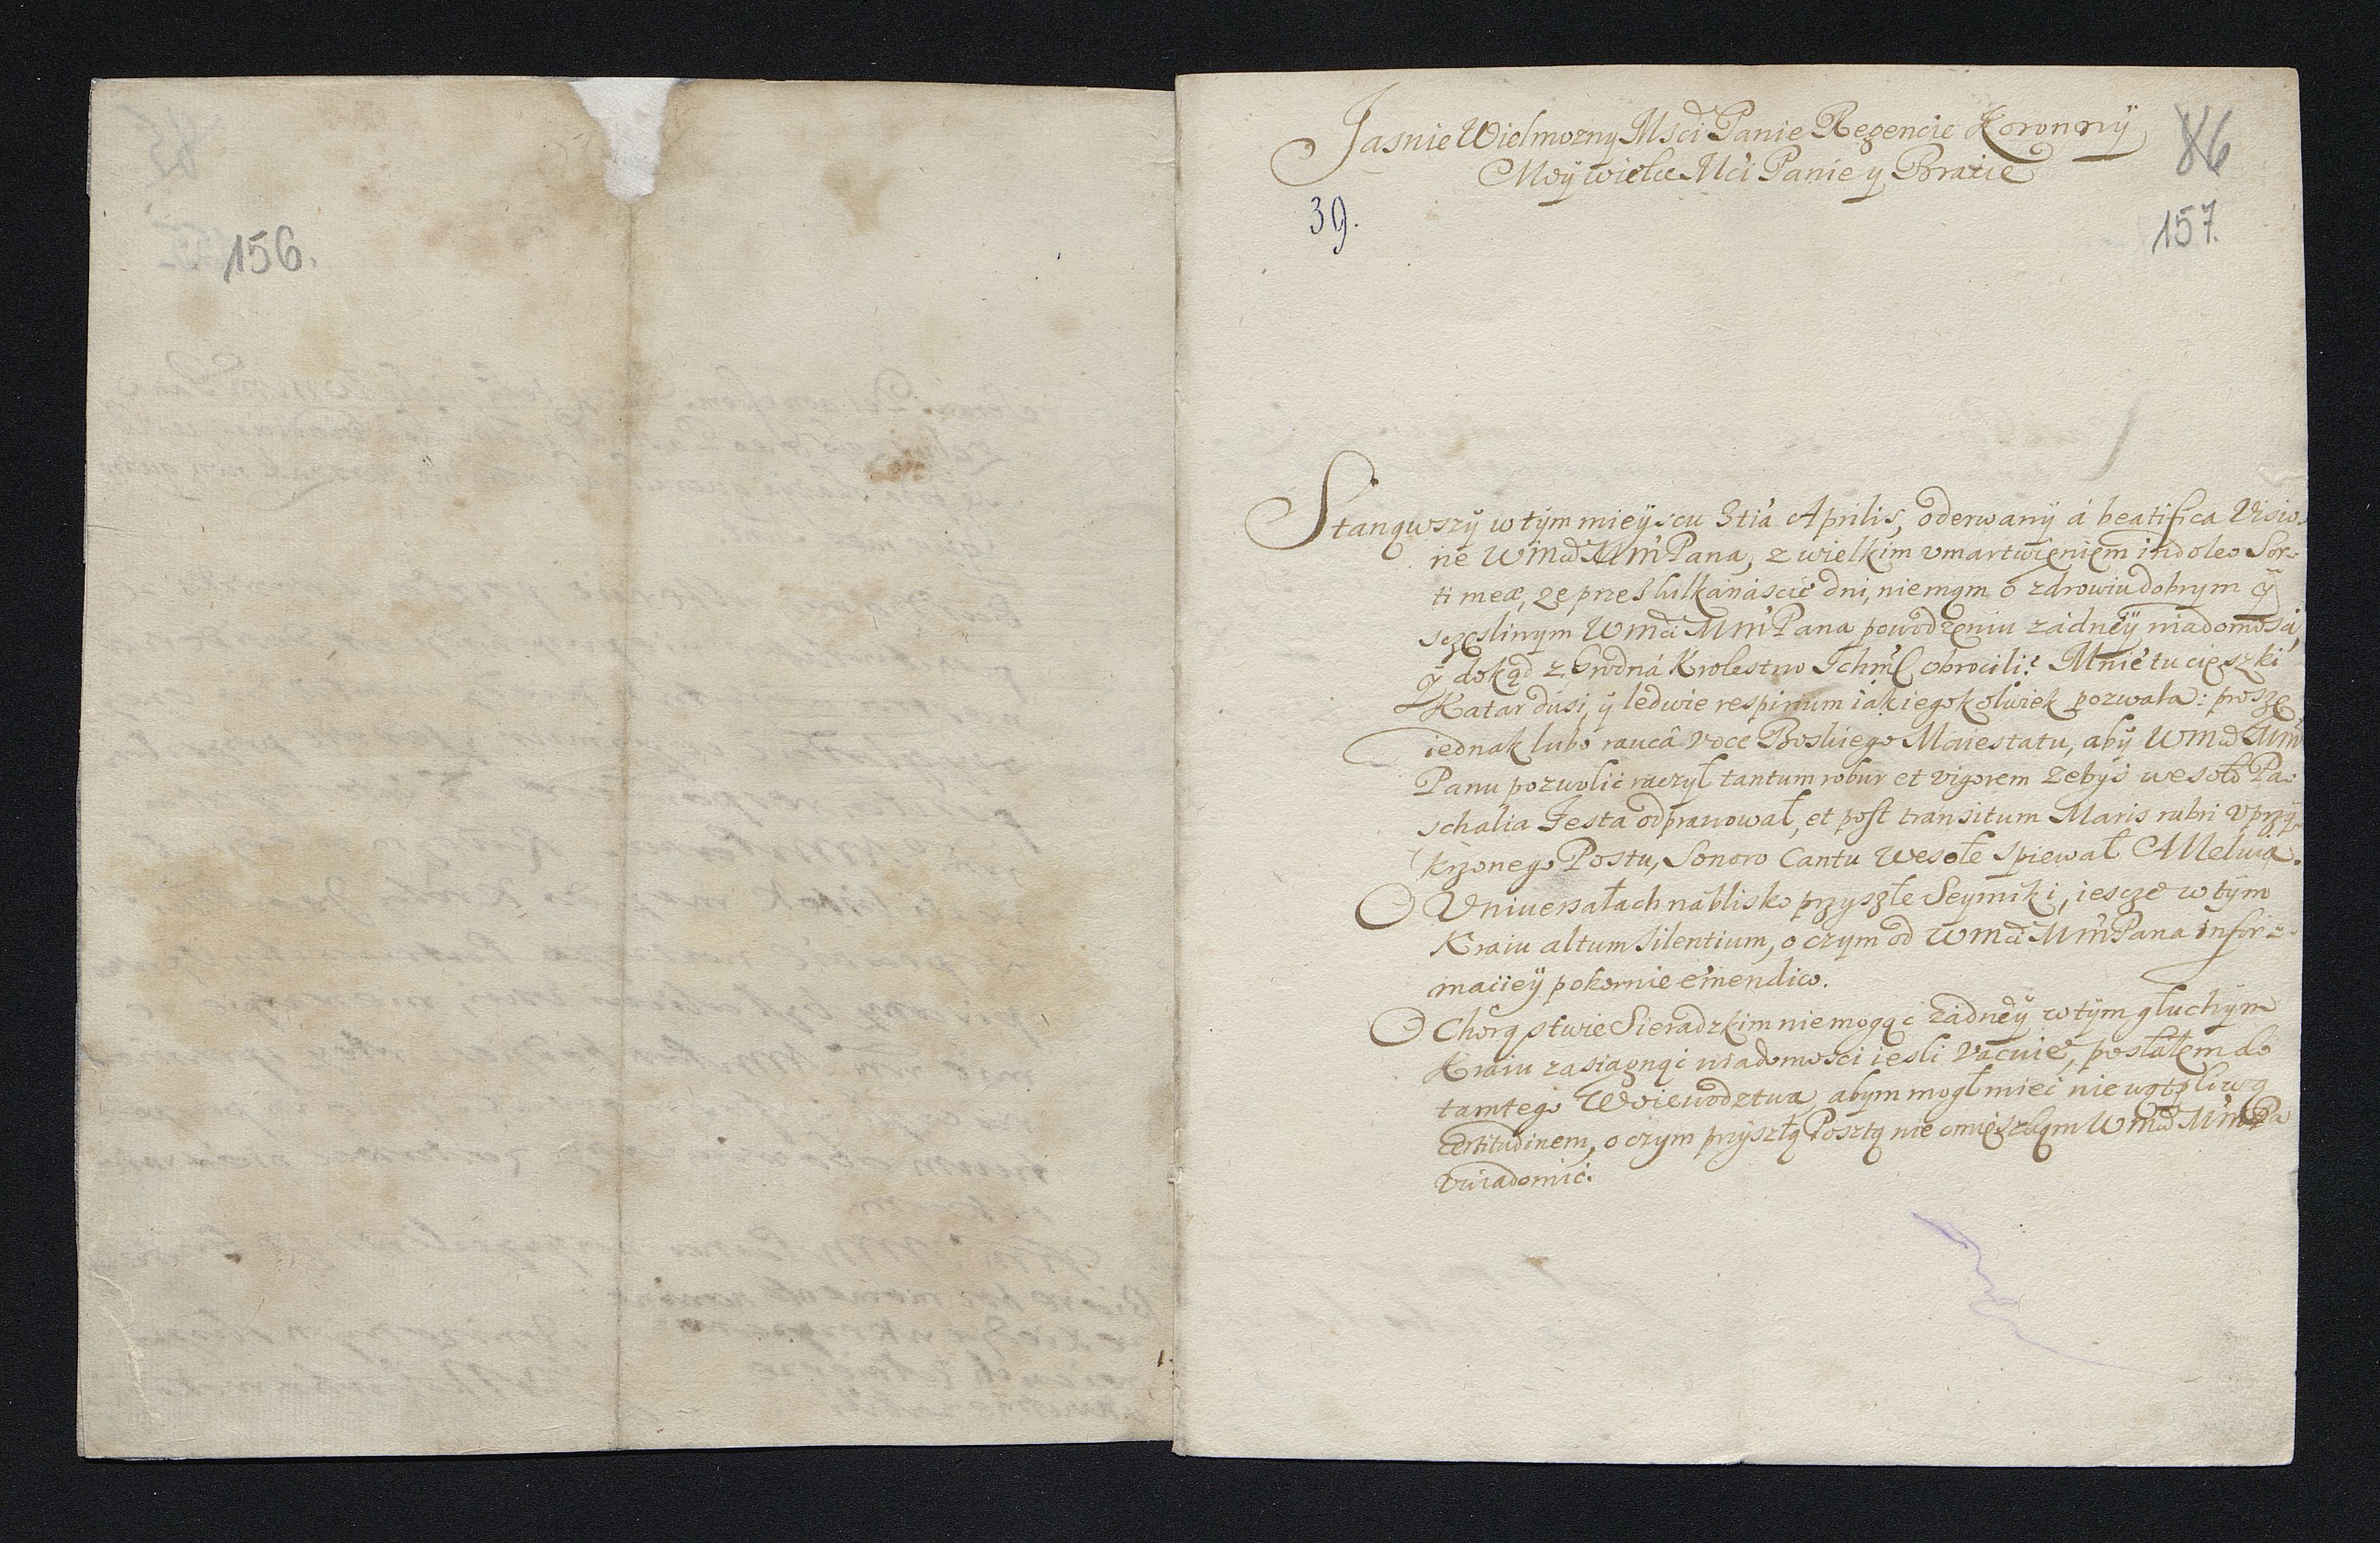 156.
Jasnie Wielmozny Msći Panie Regencie Koronnÿ
86
Moÿ wielce Mći Panie y Bracie
39.
157.
Stanąwszÿ w tÿm mieÿscu 3tia Aprilis, oderwanÿ á beatifica Visio-
ne WMći MmPana, z wielkim vmartwieniem indoleo Sor-
ti meæ, ze przes kilkanáscie dni, niemąm o zdrowiu dobrym ÿ
sczęsliwym WMći MmPana powodzeniu zádneÿ wiadomości,
ÿ dokąd z Grodná Krolestwo Ichmć obrocili? Mnie tu cięszki
Katar dusi, ÿ ledwie respirium iakiegokolwiek pozwala: proszę
iednak lubo raucâ voce Boskiego Maiestatu, abÿ WMći Mm
Panu pozwolić raczÿł tantum robur et vigorem zebyś wesoło Pa-
schalia Festa odprawował, et post transitum Maris rubri vprzÿ-
krzonego Postu, Sonoro Cantu Wesołe spiewał Alleluia.
O Vniwersałach náblisko przyszłe Seymiki, iescze w tÿm
Kraiu altum Silentium, o czym od WMći MmPana infor-
maciieÿ pokornie emendico.
O Chorąstwie Sieradzkim niemogąc zadneÿ w tÿm głuchÿm
Kraiu zasiagnąć wiadomosci iesli vacuie, posłałem do
tamtego Woiewodztwa, abym mogł mieć nie wątpliwą
certitudinem, o czym przÿszłą Posztą nie omięszkąm WMći MmPa
vwiadomić.